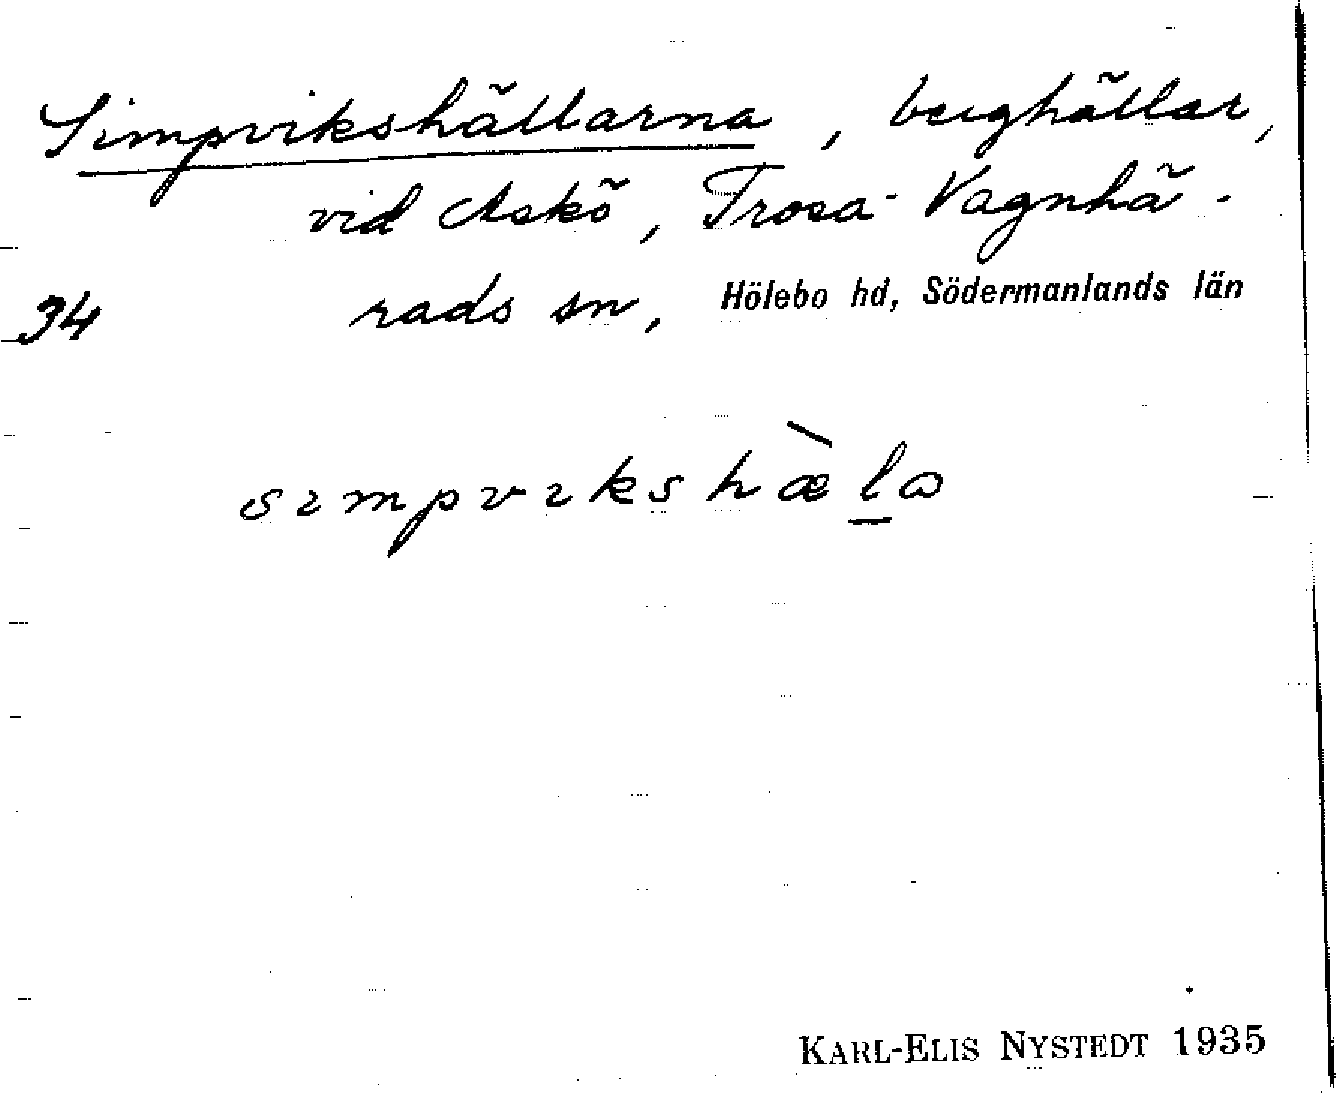 Simpvikshällarna, berghällar,
vid Askö, Trosa-Vagnhä-
34 rads sn, Hölebo hd, Södermanlands län
sımpvıkshæ̀l̠a
KARL-ELIS NYSTEDT 1935